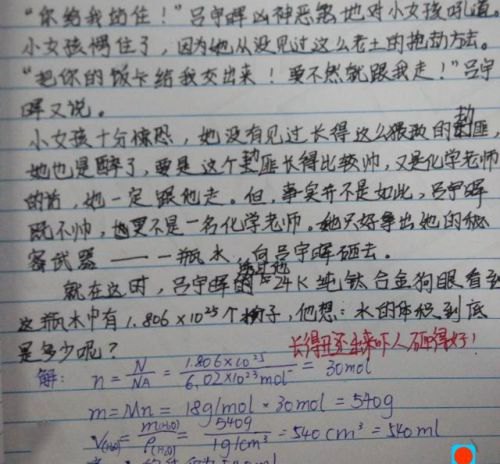 “你给我站住！”吕宇晖凶神恶煞地对小女孩吼道。
小女孩愣住了，因为她从没见过这么老土的抢劫方法。
“把你的饭卡给我交出来！要不然就跟我走！”吕宇
晖又说。
小女孩十分惊恐，她没有见过长得这么猥琐的劫匪
她也是醉了，要是这个劫匪长得比较帅，又是化学老师
的话，她一定跟他走。但，事实并不是如此，吕宇晖
既不帅，也更不是一名化学老师。她只好拿出她的秘
密武器——一瓶水，向吕宇晖砸去。
就在这时，吕宇晖的24K纯钛合金狗眼看到
这瓶水中有1.806×10²⁵个分子，他想：水的体积到底
是多少呢？
长得丑还出来吓人 砸得好！
解：n = N/NA = 1.806×10²⁵/6.02×10²³mol⁻ = 30mol
m = Mn = 18g/mol × 30mol = 540g
V(H₂O) = m(H₂O)/ρ(H₂O) = 540g/1g/cm³ = 540cm³ = 540ml